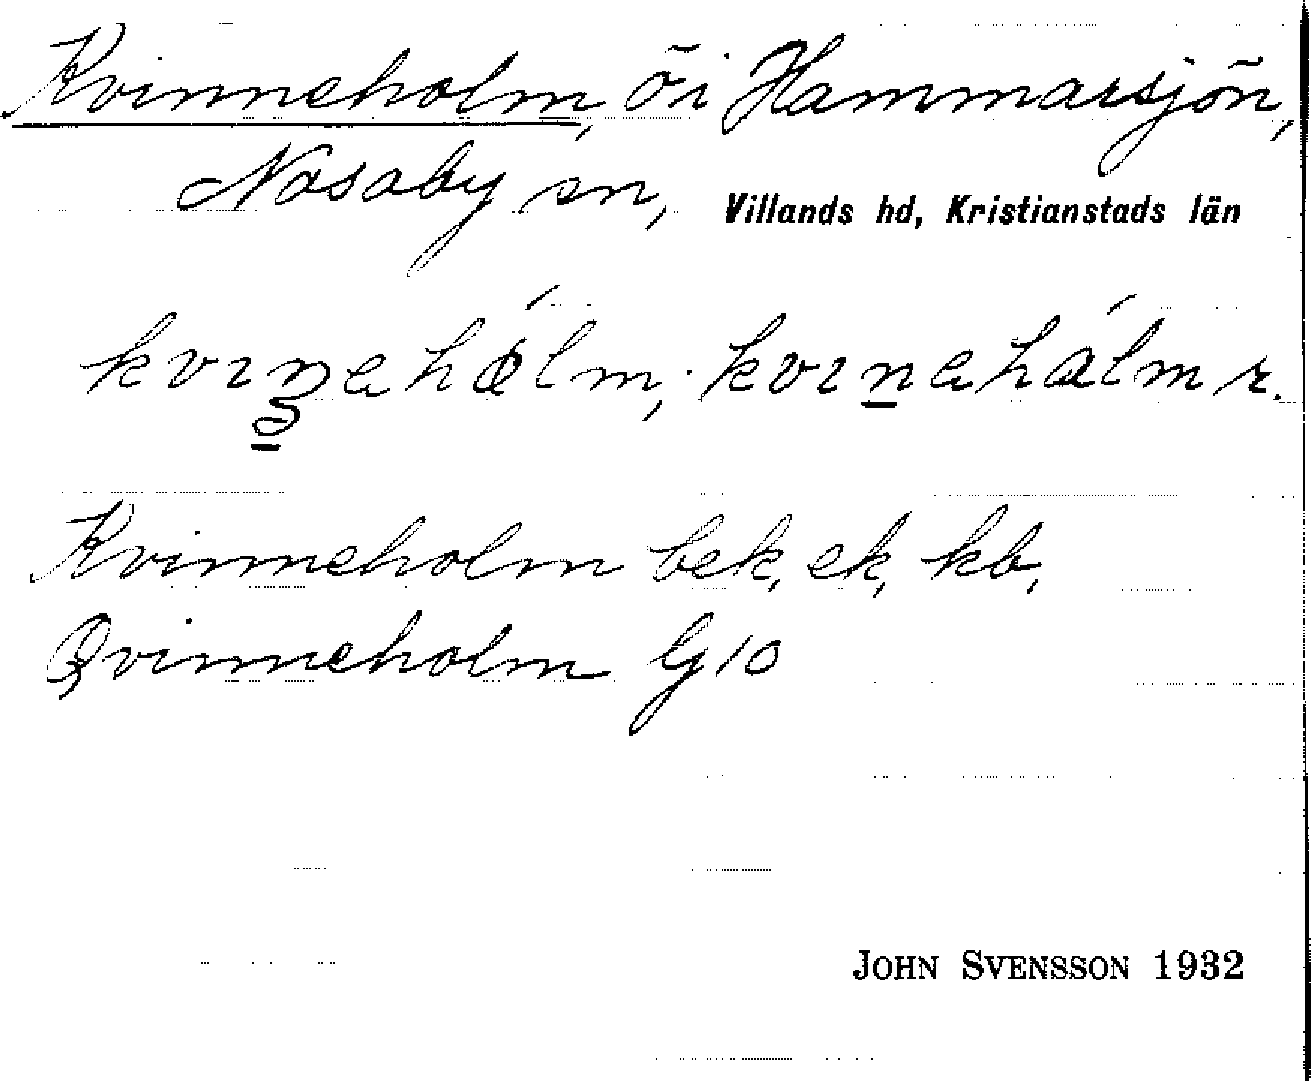 Kvinneholm, ö i Hammarsjön,
Nosaby sn, Villands hd, Kristianstads län
Kvinneholm bek, ek, kb,
Qvinneholm G10
JOHN SVENSSON 1932